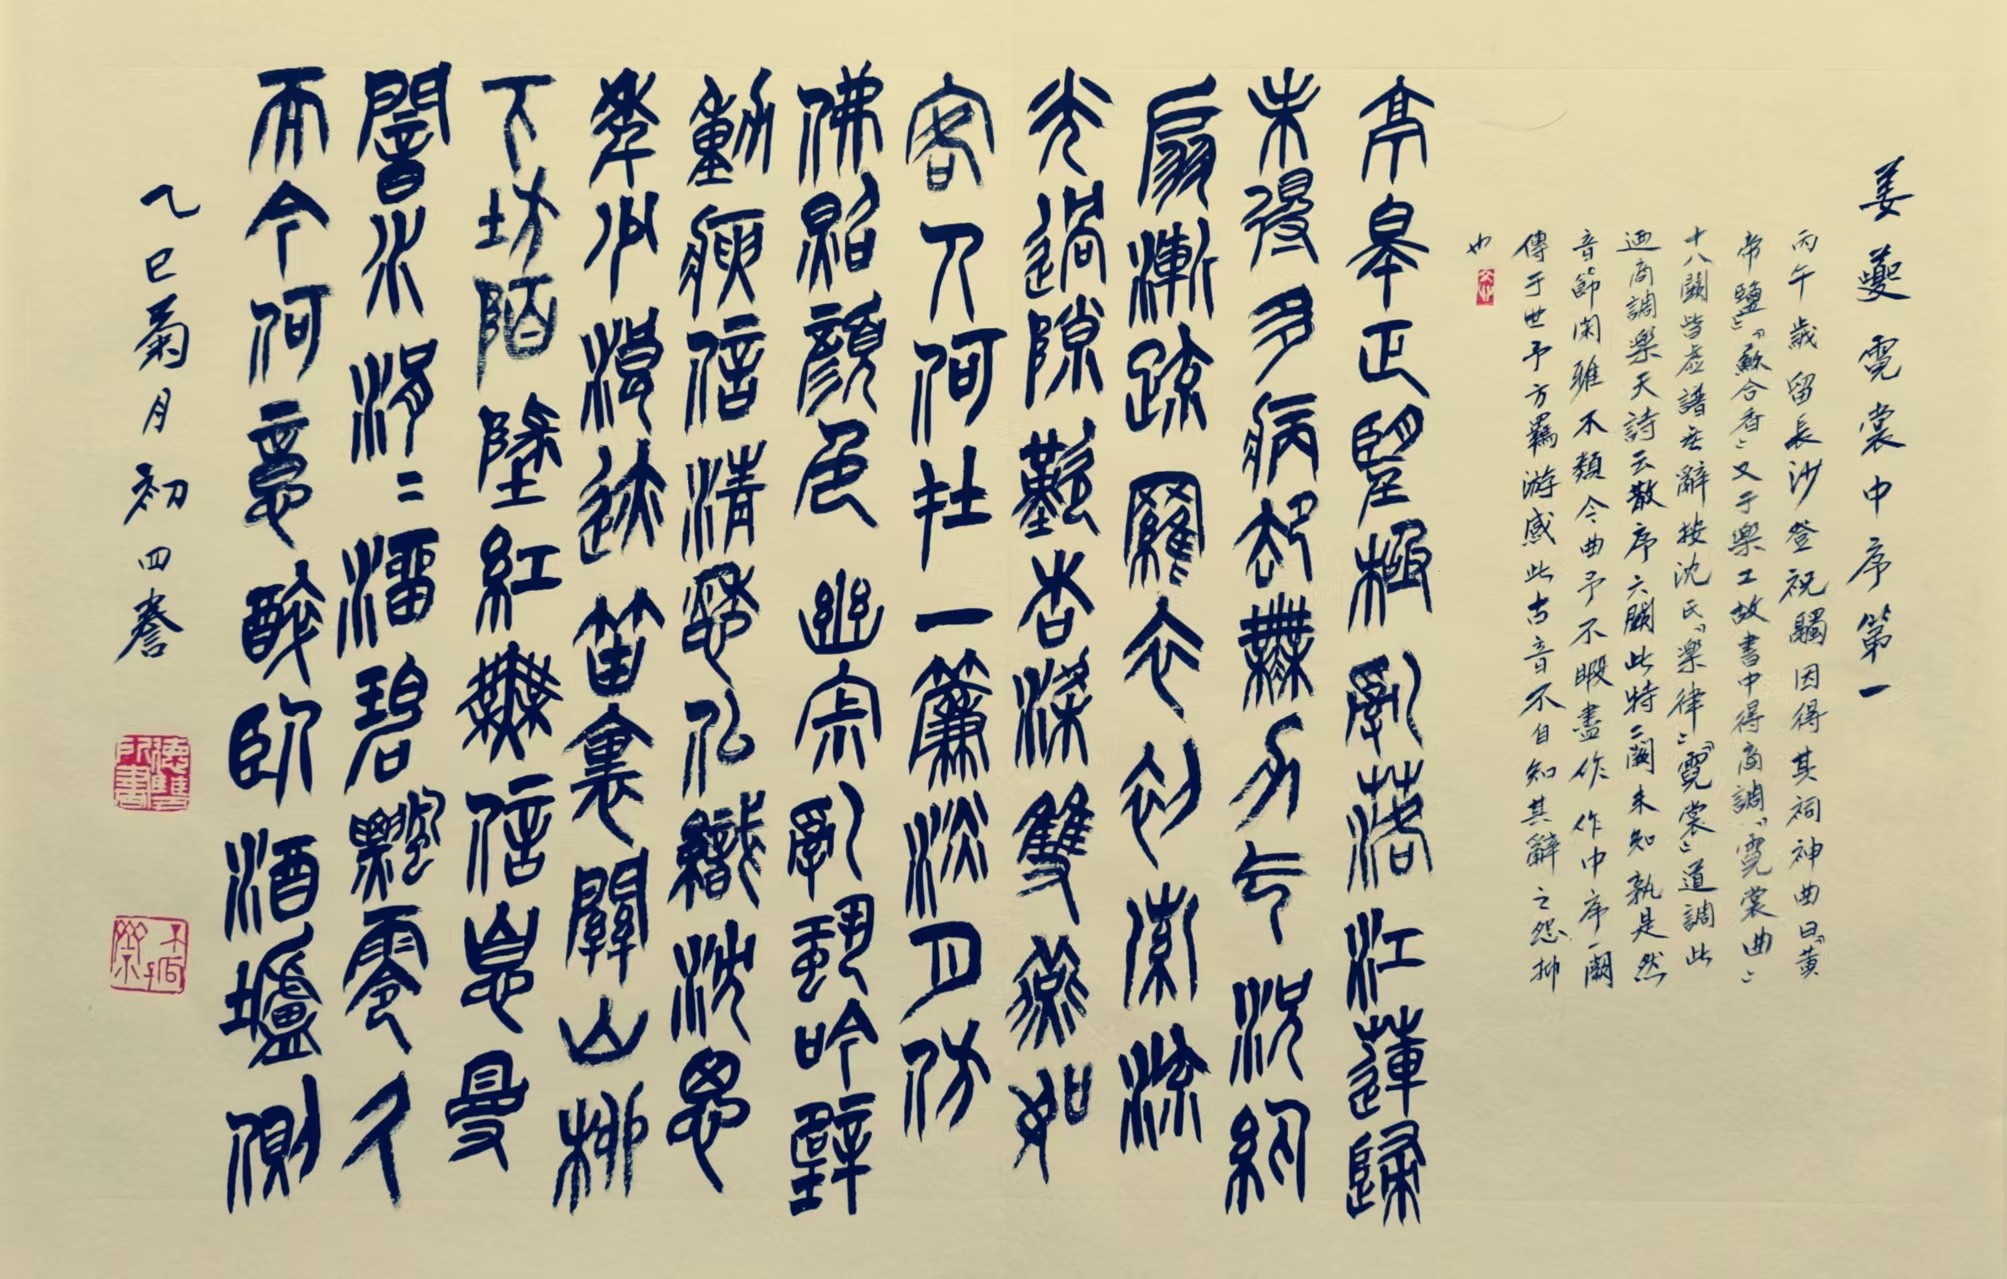 姜夔霓裳中序第一
丙午歲留長沙登祝融因得其祠神曲曰『黃
帝鹽』『蘇合香』又于樂工故書中得商調『霓裳曲』
十八闋皆虛譜無辭按沈氏『樂律』『霓裳』道調此
迺商調樂天詩云散序六闋此特二闋未知孰是然
音節閑雅不類今曲予不暇盡作作中序一闋
傳于世予方羈游感此古音不自知其辭之怨抑
也
亭皋正望極亂落江蓮歸
未得多病卻無力气況紈
扇漸疏羅衣初索流
光過隙歎杏梁雙燕如
客人何在一簾淡月仿
佛照顏色幽寂亂蛩吟壁
動庾信清愁似織沈思
年少浪迹笛裏關山柳
下坊陌墜紅無信息曼
闇水涓〻溜碧飄零久
而今何意醉臥酒壚側
乙巳菊月初四謄